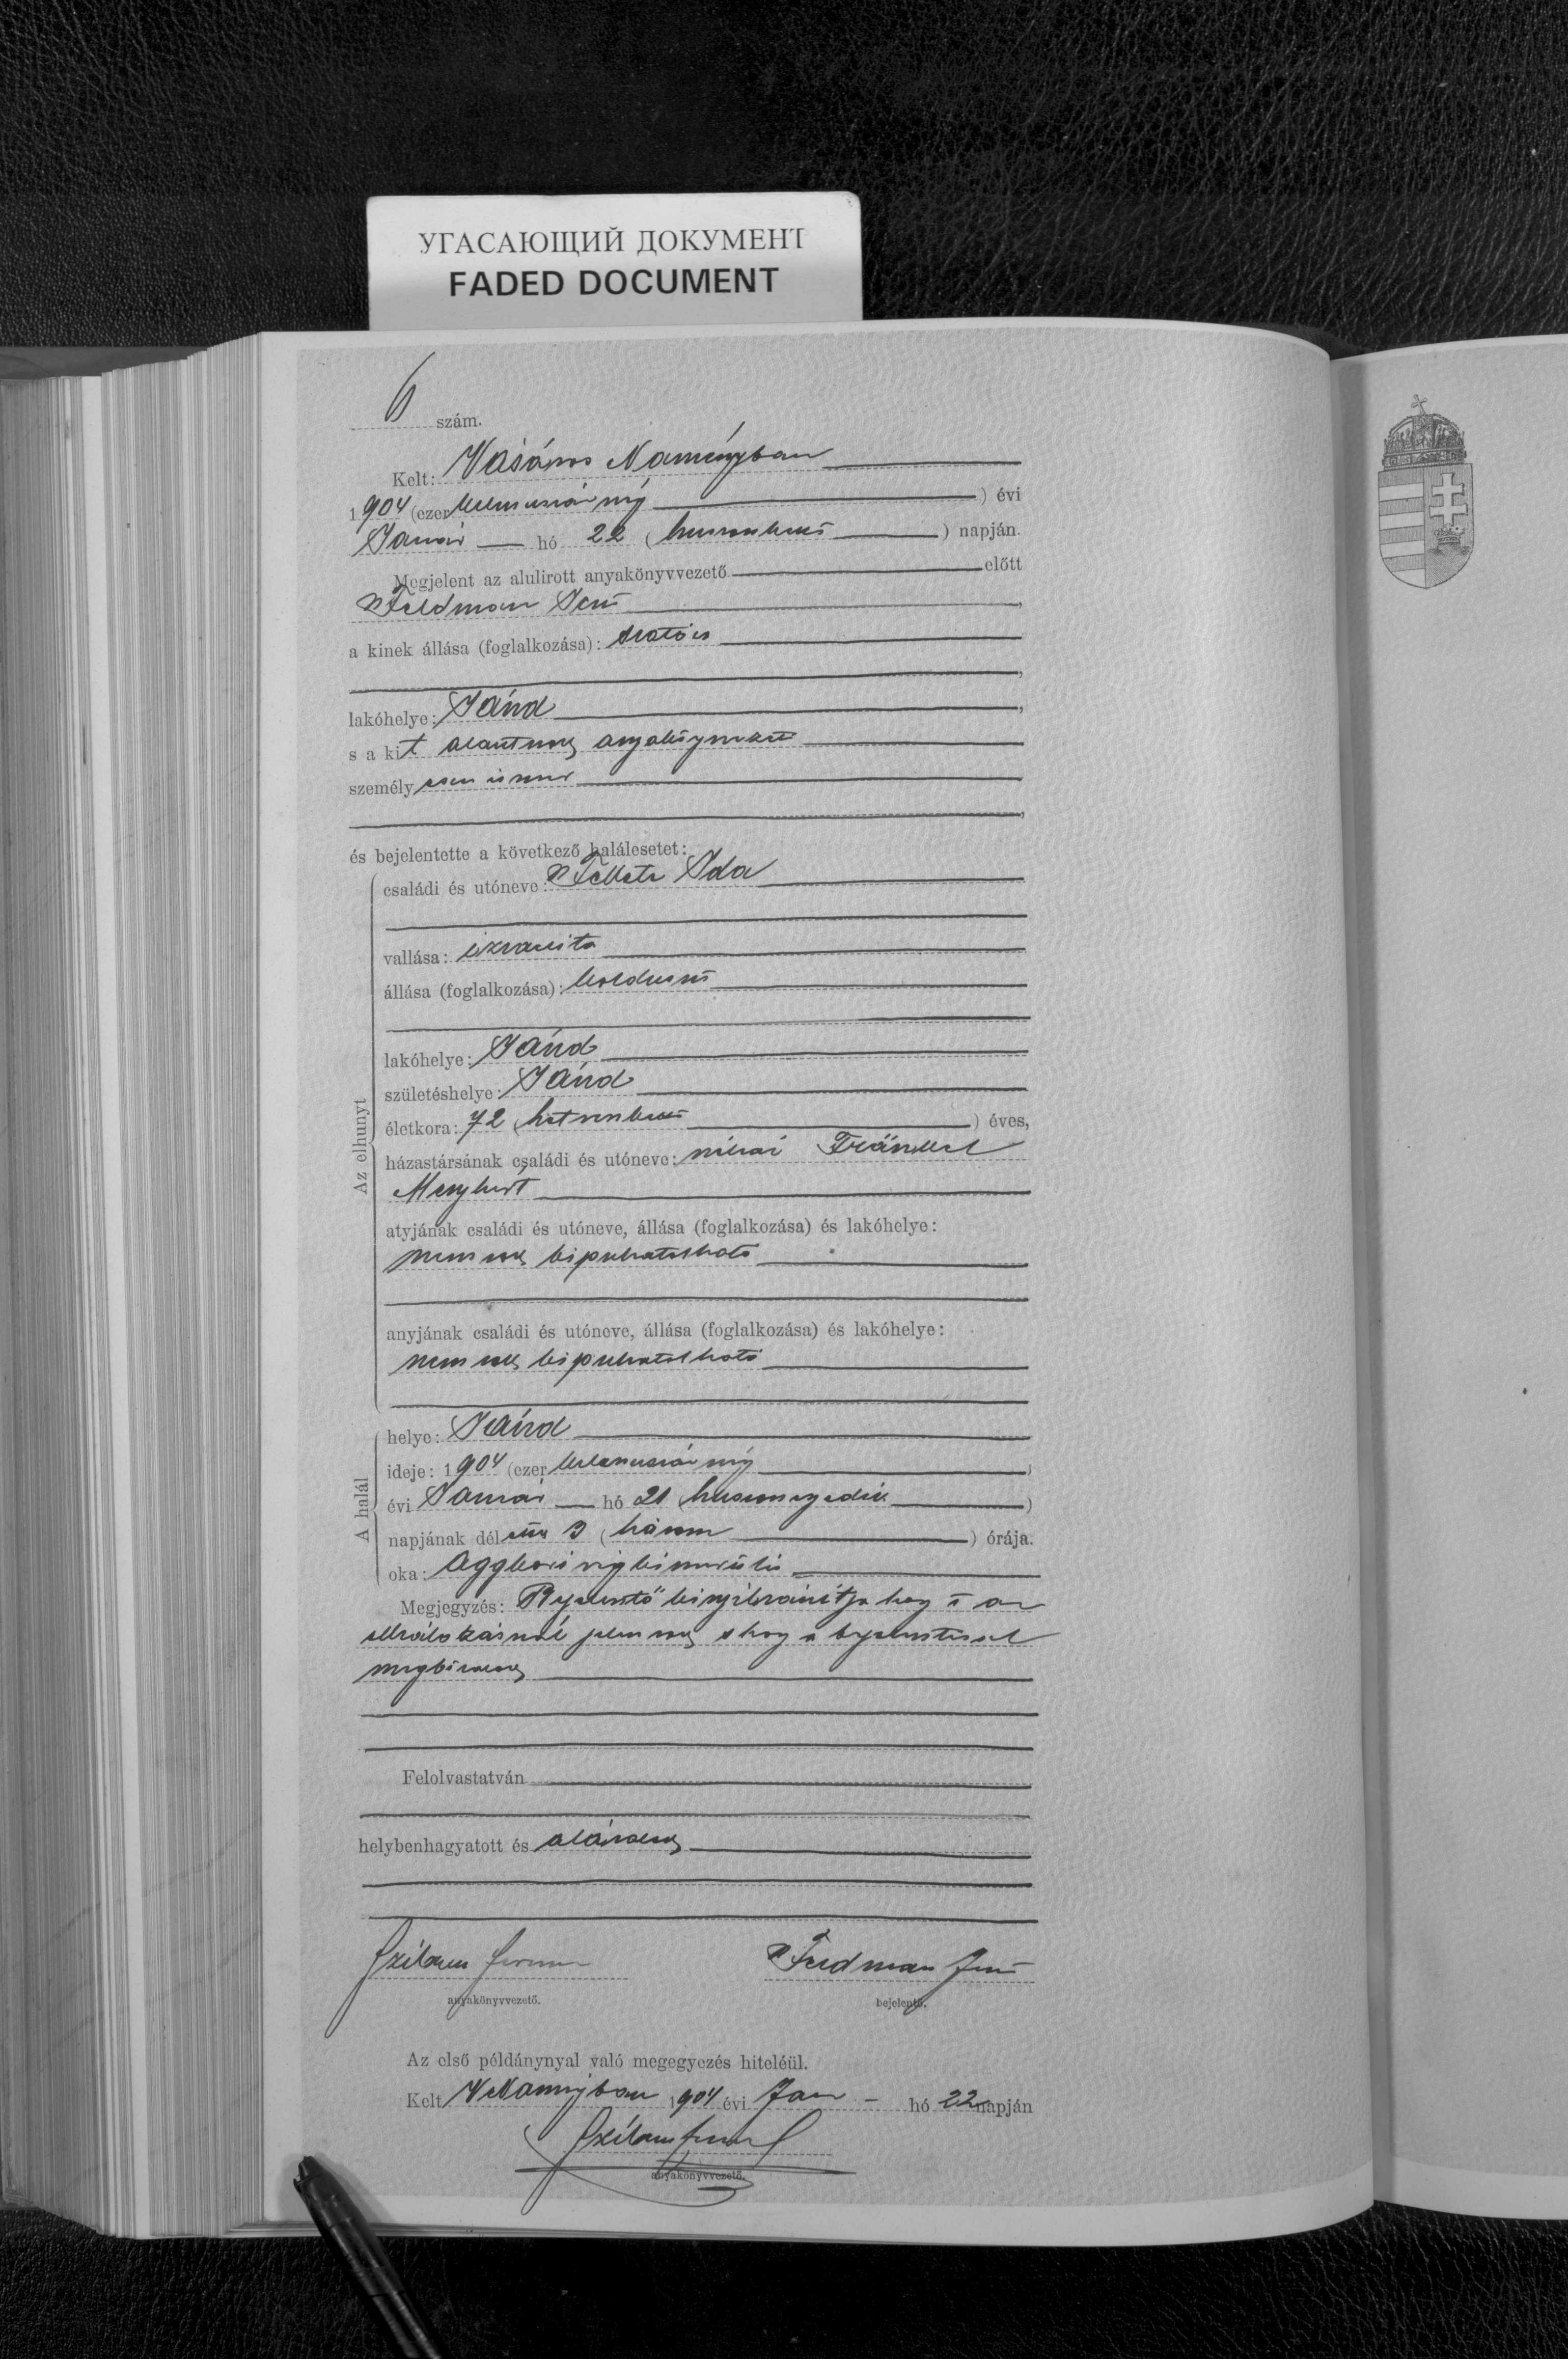 УГАСАЮЩИЙ ДОКУМЕНТ
FADED DOCUMENT
6 szám.
Kelt: Vásáros Naményban
1904 (ezer kilencszáz négy ) évi
Január hó 22 (huszonkettő ) napján.
Megjelent az alulirott anyakönyvvezető előtt
Feldman Jenő,
a kinek állása (foglalkozása):
lakóhelye: Jánd,
s a kit alantirott anyakönyvvezető
személyesen ismer
és bejelentette a következő halálesetet:
Az elhunyt
családi és utóneve: Fekete Ida
vallása: izraelita
állása (foglalkozása): koldusnő
lakóhelye: Jánd
születéshelye: Jánd
életkora: 72 (hetvenkettő ) éves,
házastársának családi és utóneve: néhai Fränkel
Menyhért
atyjának családi és utóneve, állása (foglalkozása) és lakóhelye:
nem volt kipuhatolható
anyjának családi és utóneve, állása (foglalkozása) és lakóhelye:
nem volt kipuhatolható
A halál
helye: Jánd
ideje: 1904 (ezer kilencszáz négy )
évi Január hó 21 (huszonegyedik )
napjának dél előtt 3 (három ) órája.
oka: Aggkori végkimerülés
Megjegyzés: Bejelentő kinyilvánítja hogy ő az
elhalálozásnál jelen volt s hogy a bejelentéssel
megbízatott
Felolvastatván
helybenhagyatott és aláíratott
Feldman Jenő
anyakönyvvezető. bejelentő.
Az első példánynyal való megegyezés hiteléül.
Kelt VNaményban 1904 évi Jan - hó 22 napján
anyakönyvvezető.